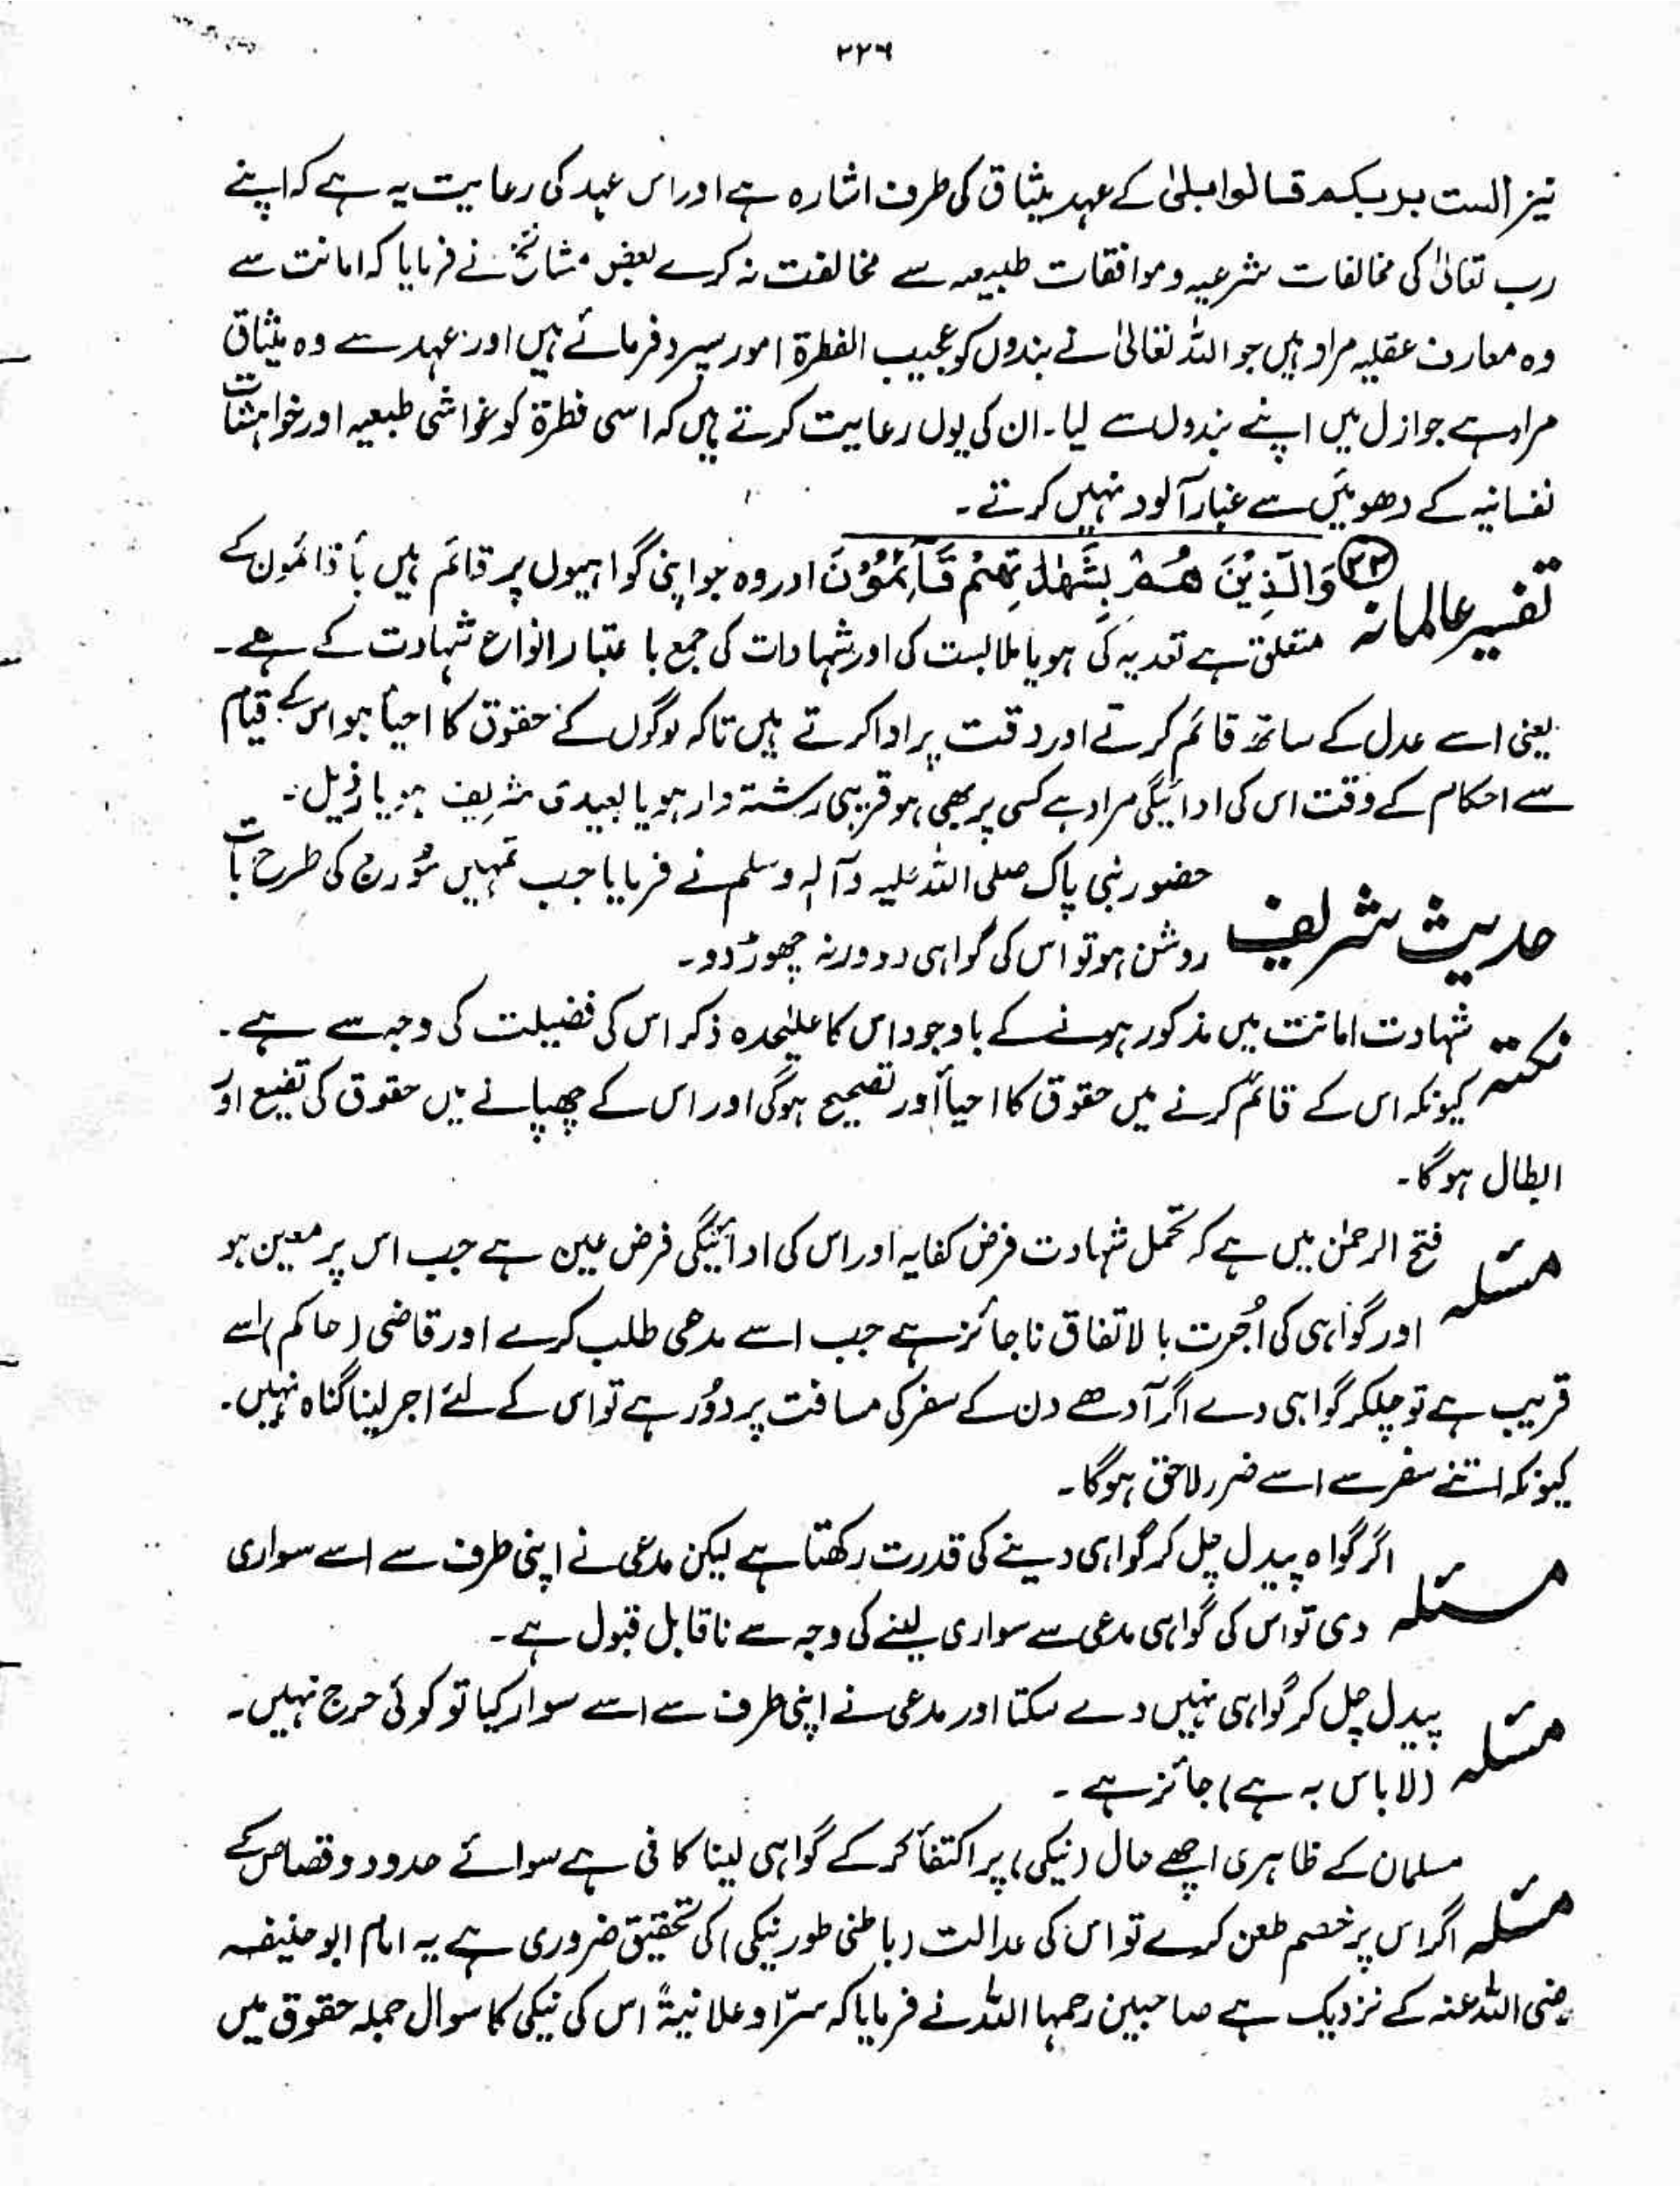 ۲۲۶
نیز الست بربکم قالوا بلیٰ کے عہد میثاق کی طرف اشارہ ہے اور اس عہد کی رعایت یہ ہے کہ اپنے
رب تعالیٰ کی مخالفات شرعیہ و موافقات طبیعیہ سے مخالفت نہ کرے بعض مشائخ نے فرمایا کہ امانت سے
وہ معارف عقلیہ مراد ہیں جو اللہ تعالیٰ نے بندوں کو عجیب الفطرۃ امور سپرد فرمائے ہیں اور عہد سے وہ میثاق
مراد ہے جو ازل میں اپنے بندوں سے لیا۔ ان کی یوں رعایت کرتے ہیں کہ اسی فطرۃ کو غواشی طبعیہ اور خواہشات
نفسانیہ کے دھوئیں سے غبار آلود نہیں کرتے۔
تفسیر عالمانہ ۳۳ وَالَّذِيْنَ هُمْ بِشَهٰدٰتِهِمْ قَآئِمُوْنَ اور وہ جو اپنی گواہیوں پر قائم ہیں بأ قائمون کے
متعلق ہے تعدیہ کی ہو یا ملابست کی اور شہادات کی جمع با عتبار انواع شہادت کے ہے۔
یعنی اسے عدل کے ساتھ قائم کرتے اور وقت پر ادا کرتے ہیں تاکہ لوگوں کے حقوق کا احیأ ہو اس کے قیام
سے احکام کے وقت اس کی ادائیگی مراد ہے کسی پر بھی ہو قریبی رشتہ دار ہو یا بعیدی شریف ہو یا رذیل۔
حدیث شریف حضور نبی پاک صلی اللہ علیہ وآلہ وسلم نے فرمایا جب تمہیں سُورج کی طرح بات
روشن ہو تو اس کی گواہی دو ورنہ چھوڑ دو۔
نکتہ شہادت امانت میں مذکور ہونے کے باوجود اس کا علیٰحدہ ذکر اس کی فضیلت کی وجہ سے ہے۔
کیونکہ اس کے قائم کرنے میں حقوق کا احیأ اور تصحیح ہوگی اور اس کے چھپانے میں حقوق کی تضیع اور
ابطال ہوگا۔
مسئلہ فتح الرحمٰن میں ہے کہ تحمل شہادت فرض کفایہ اور اس کی ادائیگی فرض عین ہے جب اس پر معین ہو
اور گواہی کی اُجرت بالاتفاق ناجائز ہے جب اسے مدعی طلب کرے اور قاضی (حاکم) اسے
قریب ہے تو چلکر گواہی دے اگر آدھے دن کے سفر کی مسافت پر دُور ہے تو اس کے لئے اجر لینا گناہ نہیں۔
کیونکہ اتنے سفر سے اسے ضرر لاحق ہوگا۔
مسئلہ اگر گواہ پیدل چل کر گواہی دینے کی قدرت رکھتا ہے لیکن مدعی نے اپنی طرف سے اسے سواری
دی تو اس کی گواہی مدعی سے سواری لینے کی وجہ سے ناقابل قبول ہے۔
مسئلہ پیدل چل کر گواہی نہیں دے سکتا اور مدعی نے اپنی طرف سے اسے سوار کیا تو کوئی حرج نہیں۔
(لا باس بہ ہے) جائز ہے۔
مسئلہ مسلمان کے ظاہری اچھے حال (نیکی) پر اکتفأ کر کے گواہی لینا کافی ہے سوائے حدود و قصاص کے
اگر اس پر خصم طعن کرے تو اس کی عدالت (باطنی طور نیکی) کی تحقیق ضروری ہے یہ امام ابو حنیفہ
رضی اللہ عنہ کے نزدیک ہے صاحبین رحمہا اللہ نے فرمایا کہ سرّا و علانیۃً اس کی نیکی کا سوال جملہ حقوق میں